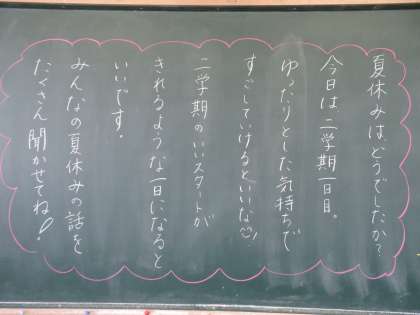 夏休みは、どうでしたか？
今日は、二学期1日目。
ゆったりとした気持ちで
すごしていけるといいな☺!
二学期のいいスタートが
きれるような一日になると
いいです。
みんなの夏休みの話を
たくさん聞かせてね!